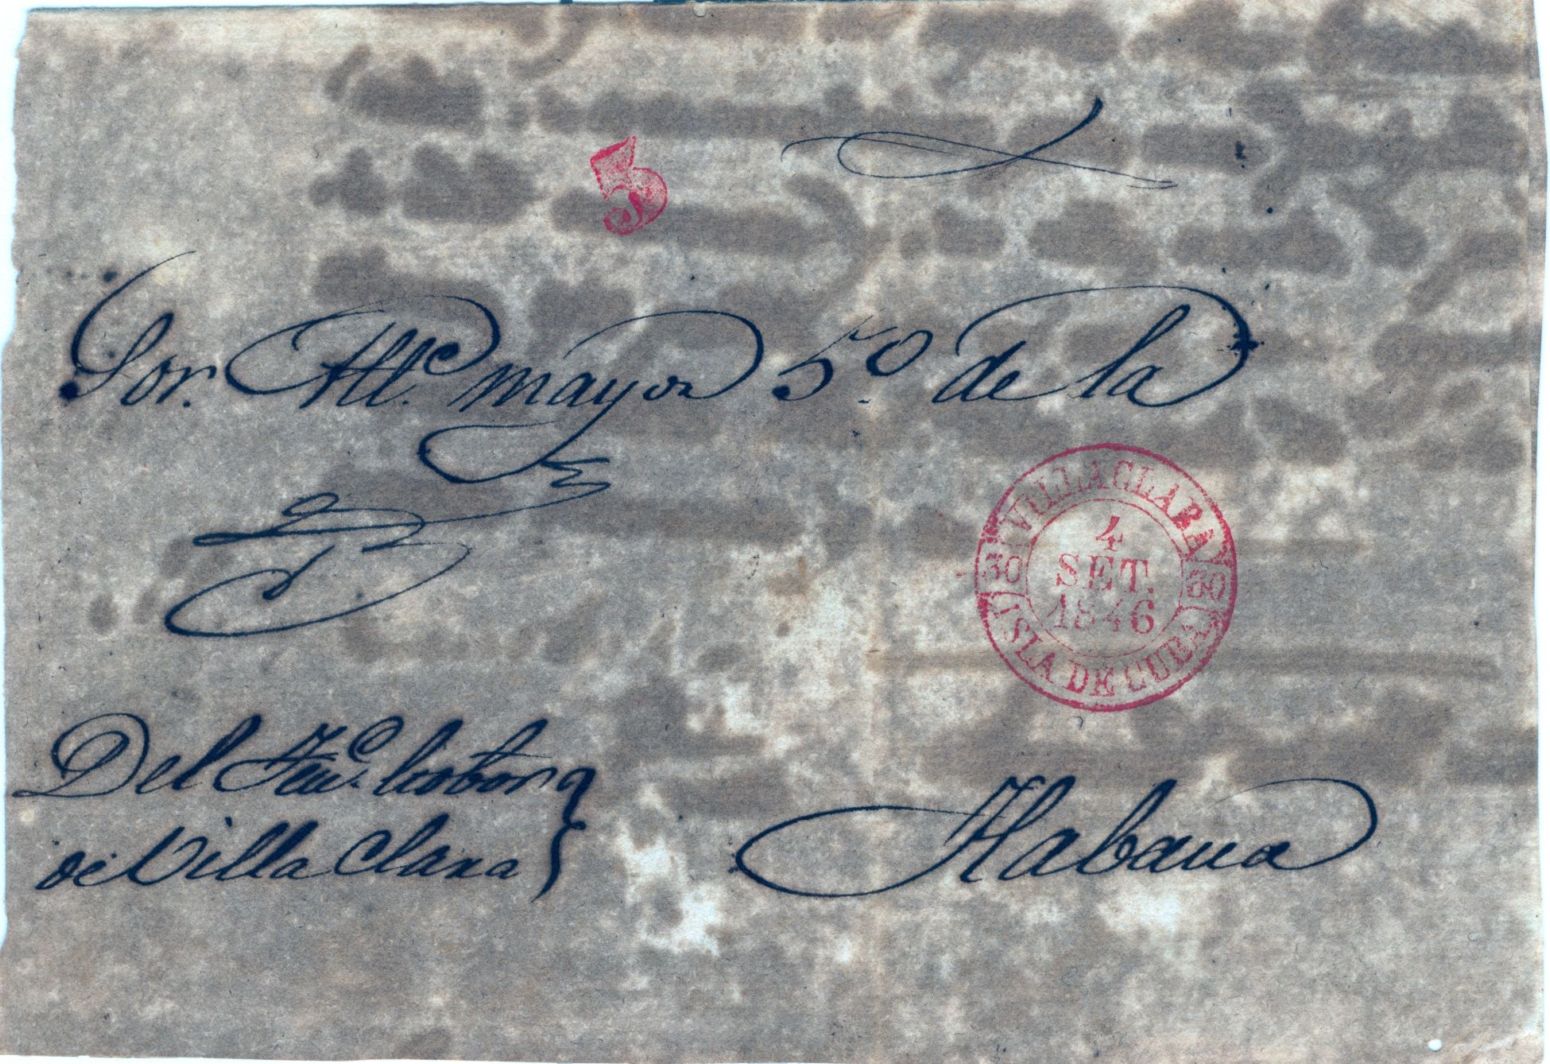 5
Sor. Alle. mayor 5.º de la
VILLACLARA
4
SET.
1846
30 30
ISLA DE CUBA
Del Ten.e
de Villa Clara
Habana